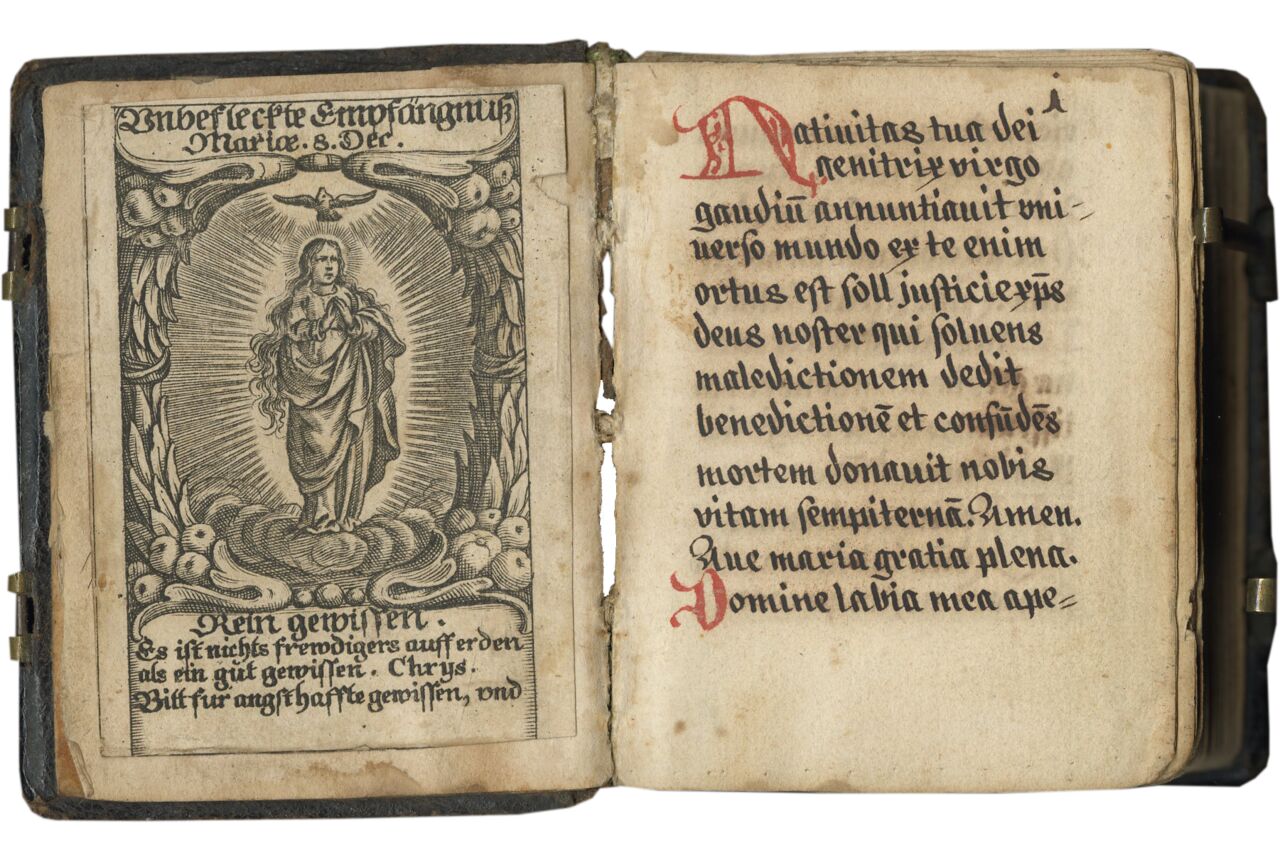 Vnbefleckte Empfängnuß
Mariæ. 8. Dec.
Rein gewissen.
Es ist nichts frewdigers auff erden
als ein gůt gewissen. Chrys.
Bitt fur angsthaffte gewissen, vnd
Natiuitas tua dei
genitrix virgo
gaudiū annuntiauit vni-
uerso mundo ex te enim
ortus est soll justicie xp̄s
deus noster qui soluens
maledictionem dedit
benedictionē et confūdēs
mortem donauit nobis
vitam sempiternā. Amen.
Aue maria gratia plena.
Domine labia mea ape=